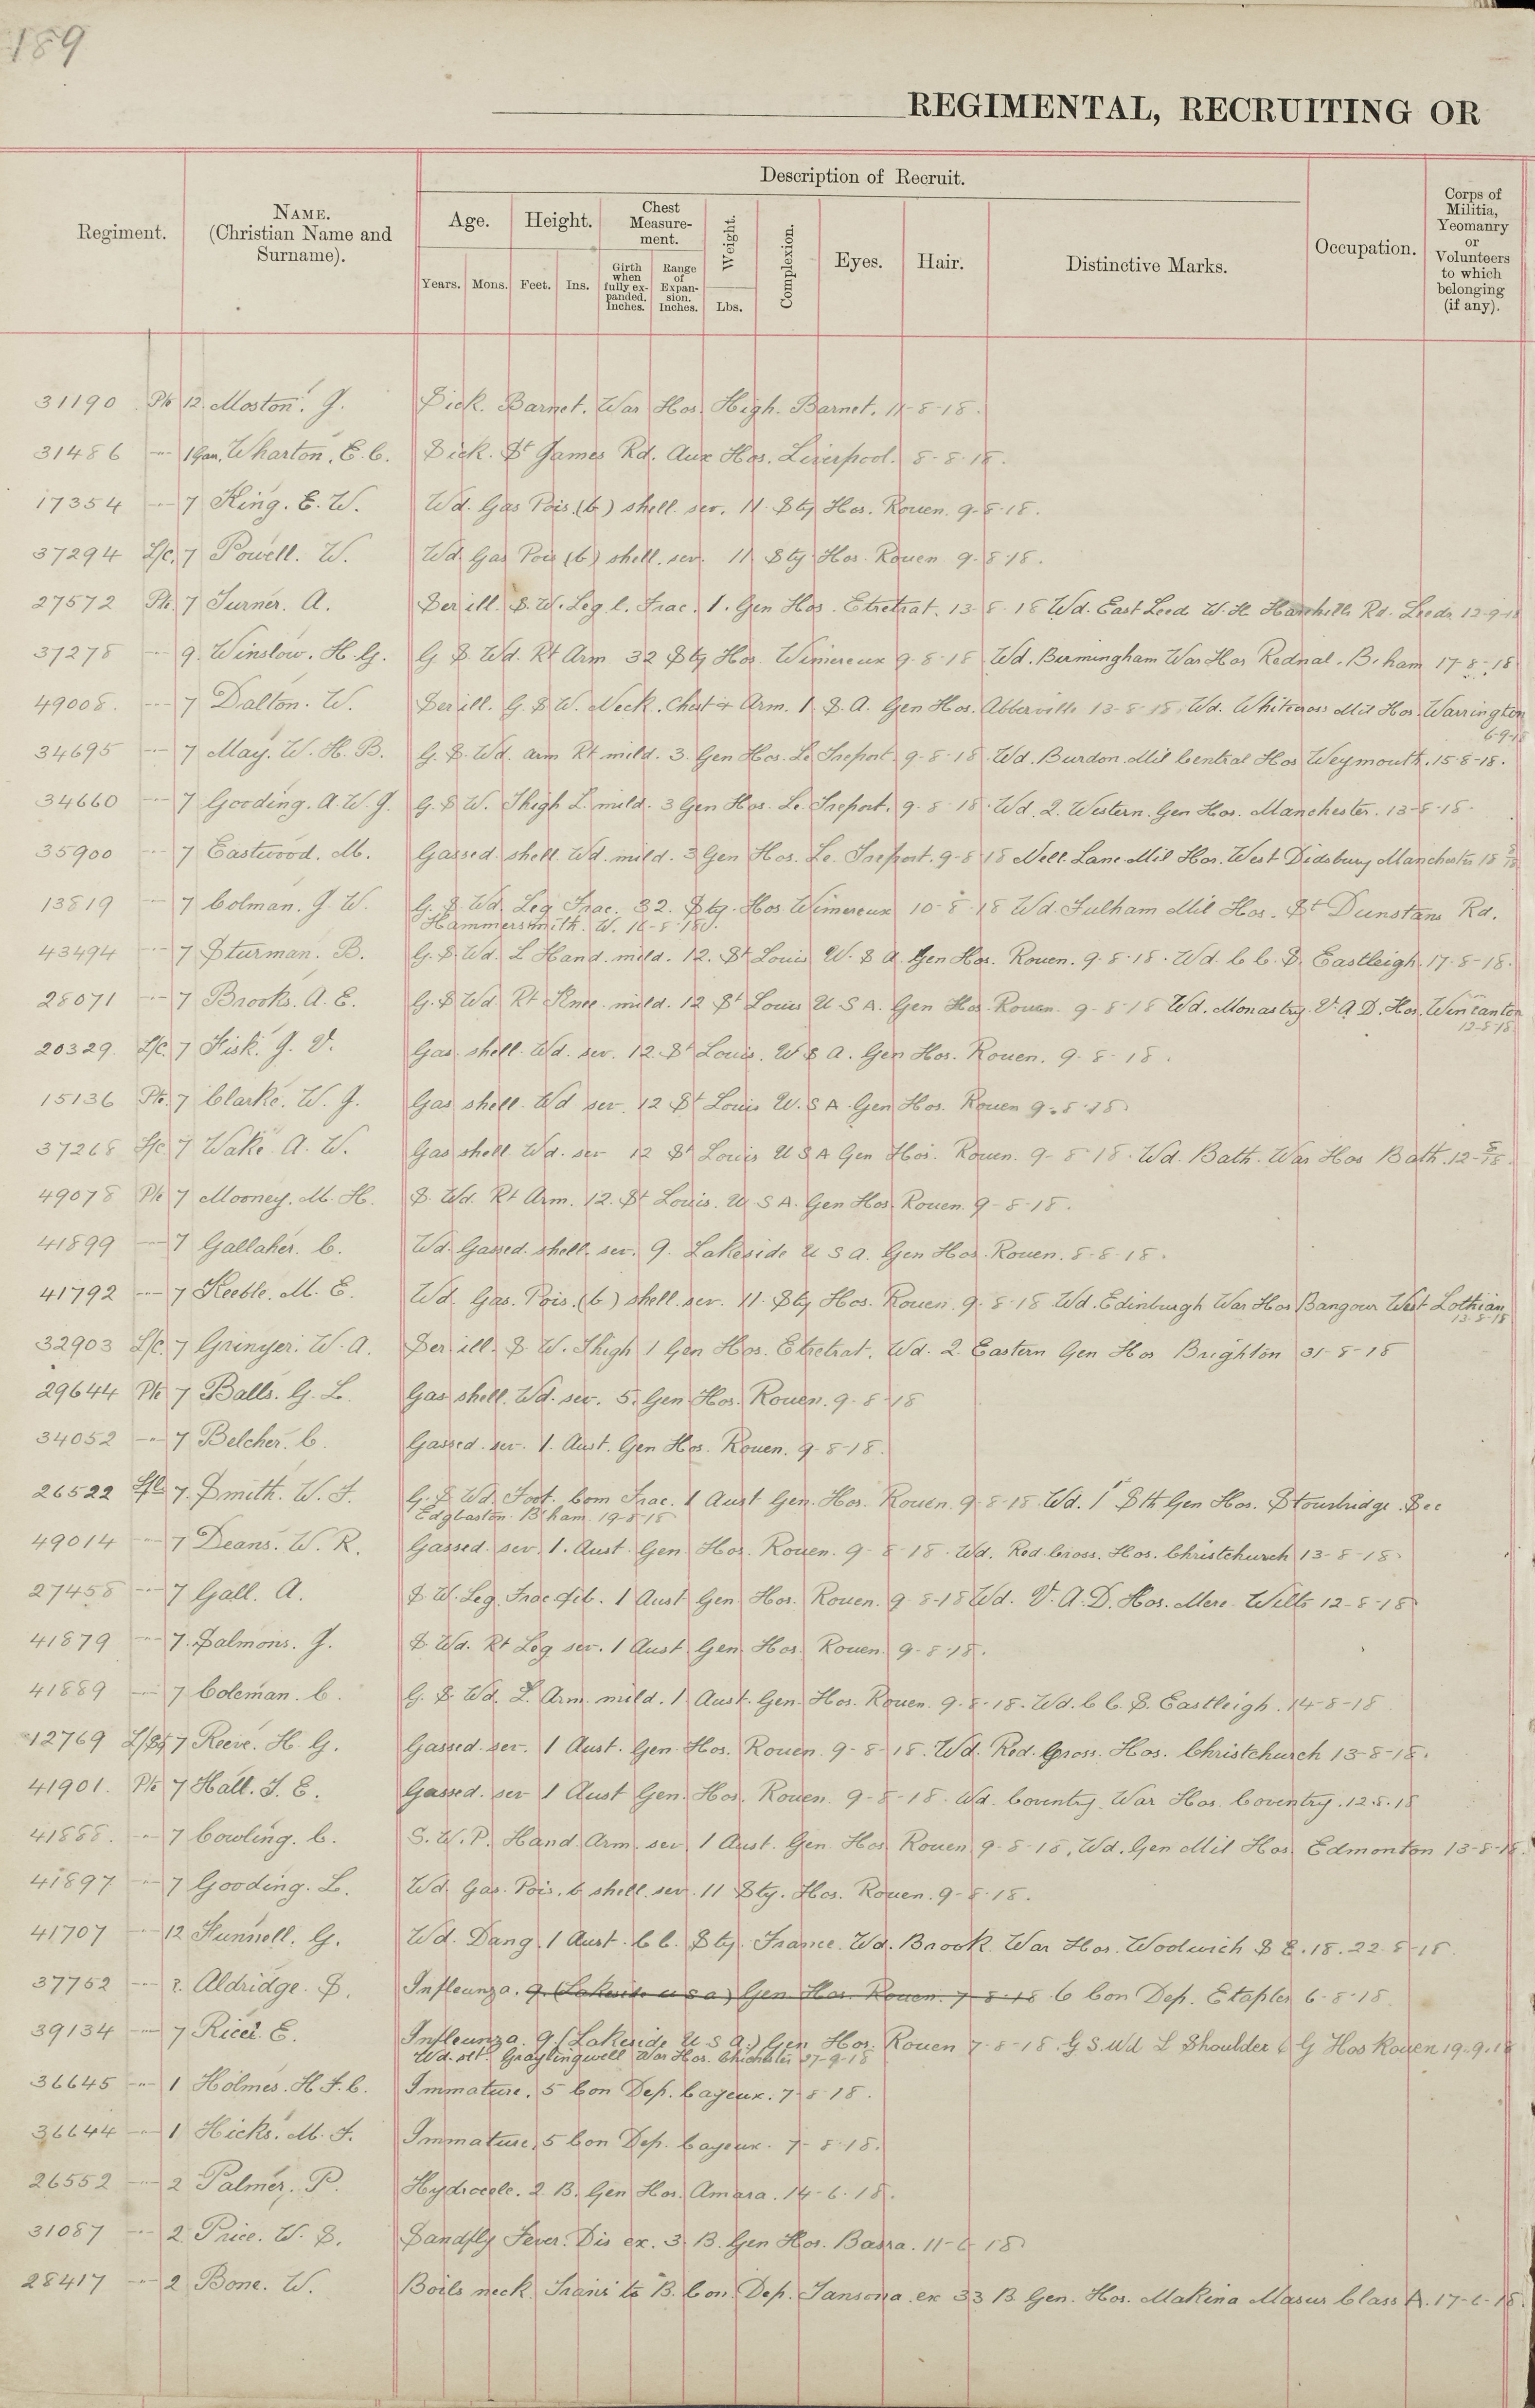 189
REGIMENTAL, RECRUITING OR
Description of Recruit.
Regiment.
NAME.
(Christian Name and
Surname).
Age.
Height.
Chest
Measure-
ment.
Weight.
Complexion.
Eyes.
Hair.
Distinctive Marks.
Occupation.
Corps of
Militia,
Yeomanry
or
Volunteers
to which
belonging
(if any).
Years.
Mons.
Feet.
Ins.
Girth
when
fully ex-
panded.
Inches.
Range
of
Expan-
sion.
Inches.
Lbs.
31190 Pte 12 Moston. J. Sick. Barnet. War Hos. High. Barnet. 11-8-18.
31486 -"- 1 Gar. Wharton. E. C. Sick. St James Rd. Aux Hos. Liverpool. 8-8-18.
17354 -"- 7 King. E. W. Wd. Gas Pois. (b) shell. sev. 11 Sty Hos. Rouen. 9-8-18.
37294 L/c. 7 Powell. W. Wd Gas Pois (b) shell. sev. 11 Sty Hos. Rouen 9-8-18.
27572 Pte. 7 Turner. A. Ser ill. S. W. Leg l. Frac. 1. Gen Hos. Etretrat. 13-8-18 Wd. East Leed W. H. Harehills Rd. Leeds 12-9-18
37278 -"- 9. Winslow. H. G. G S. Wd. Rt Arm 32 Sty Hos Wimereux 9-8-18 Wd. Birmingham War Hos Rednal. B.ham 17-8-18
49008. -"- 7 Dalton. W. Ser ill. G. S. W. Neck. Chest & Arm. 1 S. A. Gen Hos. Abberville 13-8-18. Wd. Whitecross Mil Hos. Warrington
6-9-18
34695 -"- 7 May. W. H. B. G. S. Wd. arm Rt mild. 3. Gen Hos. Le Treport. 9-8-18. Wd. Burdon. Mil Central Hos Weymouth. 15-8-18.
34660 -"- 7 Gooding. A. W. J. G. S W. Thigh L mild. 3 Gen Hos. Le. Treport. 9-8-18. Wd. 2. Western. Gen Hos. Manchester. 13-8-18.
35900 -"- 7 Eastwood. M. Gassed shell. Wd. mild. 3 Gen Hos. Le. Treport. 9-8-18 Nell Lane Mil Hos. West Didsbury Manchester 18 8/18
13819 -"- 7 Colman. J. W. G. S. Wd Leg Frac. 32. Sty. Hos Wimereux 10-8-18 Wd. Fulham Mil Hos. St Dunstans Rd.
Hammersmith. W. 16-8-18.
43494 -"- 7 Sturman. B. G. S. Wd. L Hand. mild. 12. St Louis U. S A. Gen Hos. Rouen. 9-8-18. Wd. C. C. S. Eastleigh. 17-8-18.
28071 -"- 7 Brooks. A. E. G. S Wd Rt Knee mild. 12 St Louis U S A. Gen Hos. Rouen. 9-8-18 Wd. Monastry. V. A D. Hos. Wincanton
12-8-18
20329 L/c. 7 Fisk. J. V. Gas. shell. Wd. sev. 12. St Louis. U S A. Gen Hos. Rouen. 9-8-18.
15136 Pte. 7 Clarke. W. J. Gas shell Wd sev. 12 St Louis U. S A. Gen Hos. Rouen 9-8-18
37268 L/c 7 Wake. A. W. Gas shell Wd. sev 12 St Louis U S A Gen Hos. Rouen. 9-8-18. Wd. Bath. War Hos Bath. 12-8-18.
49078 Pte 7 Mooney. M. H. S. Wd. Rt Arm. 12. St Louis. U S A. Gen Hos. Rouen. 9-8-18.
41899 -"- 7 Gallaher. C. Wd. Gassed. shell. sev. 9. Lakeside U S A. Gen Hos. Rouen. 8-8-18.
41792 -"- 7 Keeble. M. E. Wd. Gas. Pois. (b) shell. sev. 11. Sty Hos. Rouen. 9-8-18 Wd. Edinburgh War Hos Bangour West Lothian
13-8-18
32903 L/c. 7 Grinyer. W. A. Ser ill. S. W. Thigh 1 Gen Hos. Etretrat. Wd. 2. Eastern Gen Hos Brighton 31-8-18
29644 Pte 7 Balls. G. L. Gas shell. Wd. sev. 5. Gen Hos. Rouen. 9-8-18
34052 -"- 7 Belcher. C. Gassed. sev. 1. Aust. Gen Hos. Rouen. 9-8-18.
26522 7. Smith. W. F. G. S. Wd. Foot. Com Frac. 1 Aust Gen. Hos. Rouen. 9-8-18. Wd. 1st Sth Gen Hos. Stourbridge. Sec
Edgbaston B'ham. 19-8-18
49014 -"- 7 Deans. W. R. Gassed. sev. 1. Aust. Gen Hos. Rouen. 9-8-18. Wd. Red. Cross. Hos. Christchurch 13-8-18.
27458 -"- 7 Gall. A. S. W. Leg. Frac. fib. 1 Aust Gen Hos. Rouen. 9-8-18 Wd. V. A. D. Hos. Mere. Wilts 12-8-18
41879 -"- 7. Salmons. J. S. Wd. Rt Leg sev. 1 Aust Gen. Hos. Rouen. 9-8-18.
41889 -"- 7 Coleman. C. G. S. Wd. L. Arm mild. 1 Aust. Gen. Hos. Rouen. 9-8-18. Wd. C C. S. Eastleigh. 14-8-18
12769 L/Sgt 7 Reeve. H. G. Gassed. sev. 1 Aust. Gen. Hos. Rouen. 9-8-18. Wd. Red. Cross. Hos. Christchurch 13-8-18.
41901. Pte 7 Hall. F. E. Gassed. sev 1 Aust Gen. Hos. Rouen. 9-8-18. Wd. Coventry. War Hos. Coventry. 12.8.18
41888. -"- 7 Cowling. C. S. W. P. Hand. Arm. sev. 1 Aust. Gen Hos Rouen 9-8-18. Wd. Gen Mil Hos. Edmonton 13-8-18.
41897 -"- 7 Gooding. L. Wd. Gas. Pois. b shell. sev. 11 Sty. Hos. Rouen. 9-8-18.
41707 -"- 12 Hunnell. G. Wd. Dang. 1 Aust. C C. Sty. France. Wd. Brook. War Hos. Woolwich S E. 18. 22-8-18.
37752 -"- 2. Aldridge. S. Infleunza. 9. (Lakeside u s a) Gen Hos. Rouen. 7-8-18 6 Con Dep. Etaples 6-8-18.
39134 -"- 7 Ricci. E. Infleunza. 9. (Lakeside U S A.) Gen Hos. Rouen 7-8-18. G S. Wd L Shoulder 6 G Hos Rouen 19.9.18
Wd. slt. Graylingwell War Hos. Chichester 27-9-18
36645 -"- 1 Holmes. H. F. C. Immature. 5 Con Dep. Cayeux. 7-8-18.
36644 -"- 1 Hicks. M. F. Immature, 5 Con Dep. Cayeux. 7-8-18.
26552 -"- 2 Palmer. P. Hydrocele. 2 B. Gen Hos. Amara. 14-6-18.
31087 -"- 2 Price. W. S. Sandfly Fever. Dis ex. 3. B. Gen Hos. Basra. 11-6-18
28417 -"- 2 Bone. W. Boils neck Trans to B. Con. Dep. Tansona. ex 33 B Gen. Hos. Makina Masus Class A. 17-6-18.